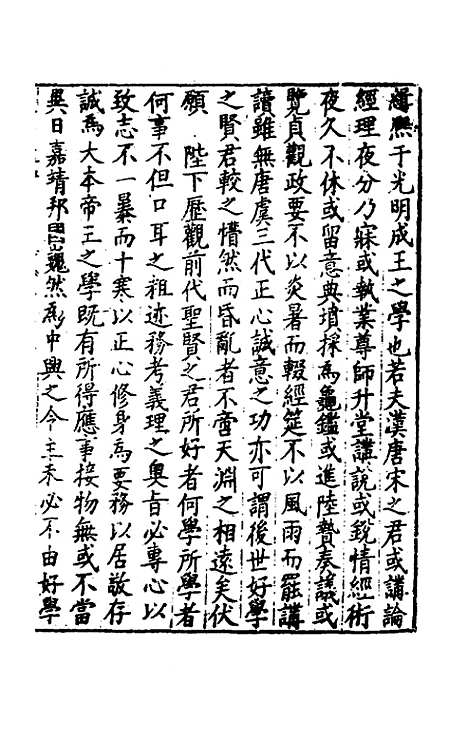 緝熙于光明成王之學也若夫漢唐宋之君或講論
經理夜分乃寐或執業尊師升堂講說或銳情經術
夜久不休或留意典墳採為龜鑑或進陸贄奏議或
覽貞觀政要不以炎暑而輟經筵不以風雨而罷講
讀雖無唐虞三代正心誠意之功亦可謂後世好學
之賢君較之懵然而昏亂者不啻天淵之相遠矣伏
願　陛下歷觀前代聖賢之君所好者何學所學者
何事不但口耳之祖述務考義理之奧旨必專心以
致志不一暴而十寒以正心修身為要務以居敬存
誠為大本帝王之學既有所得應事接物無或不當
異日嘉靖邦國巍然為中興之令主未必不由好學